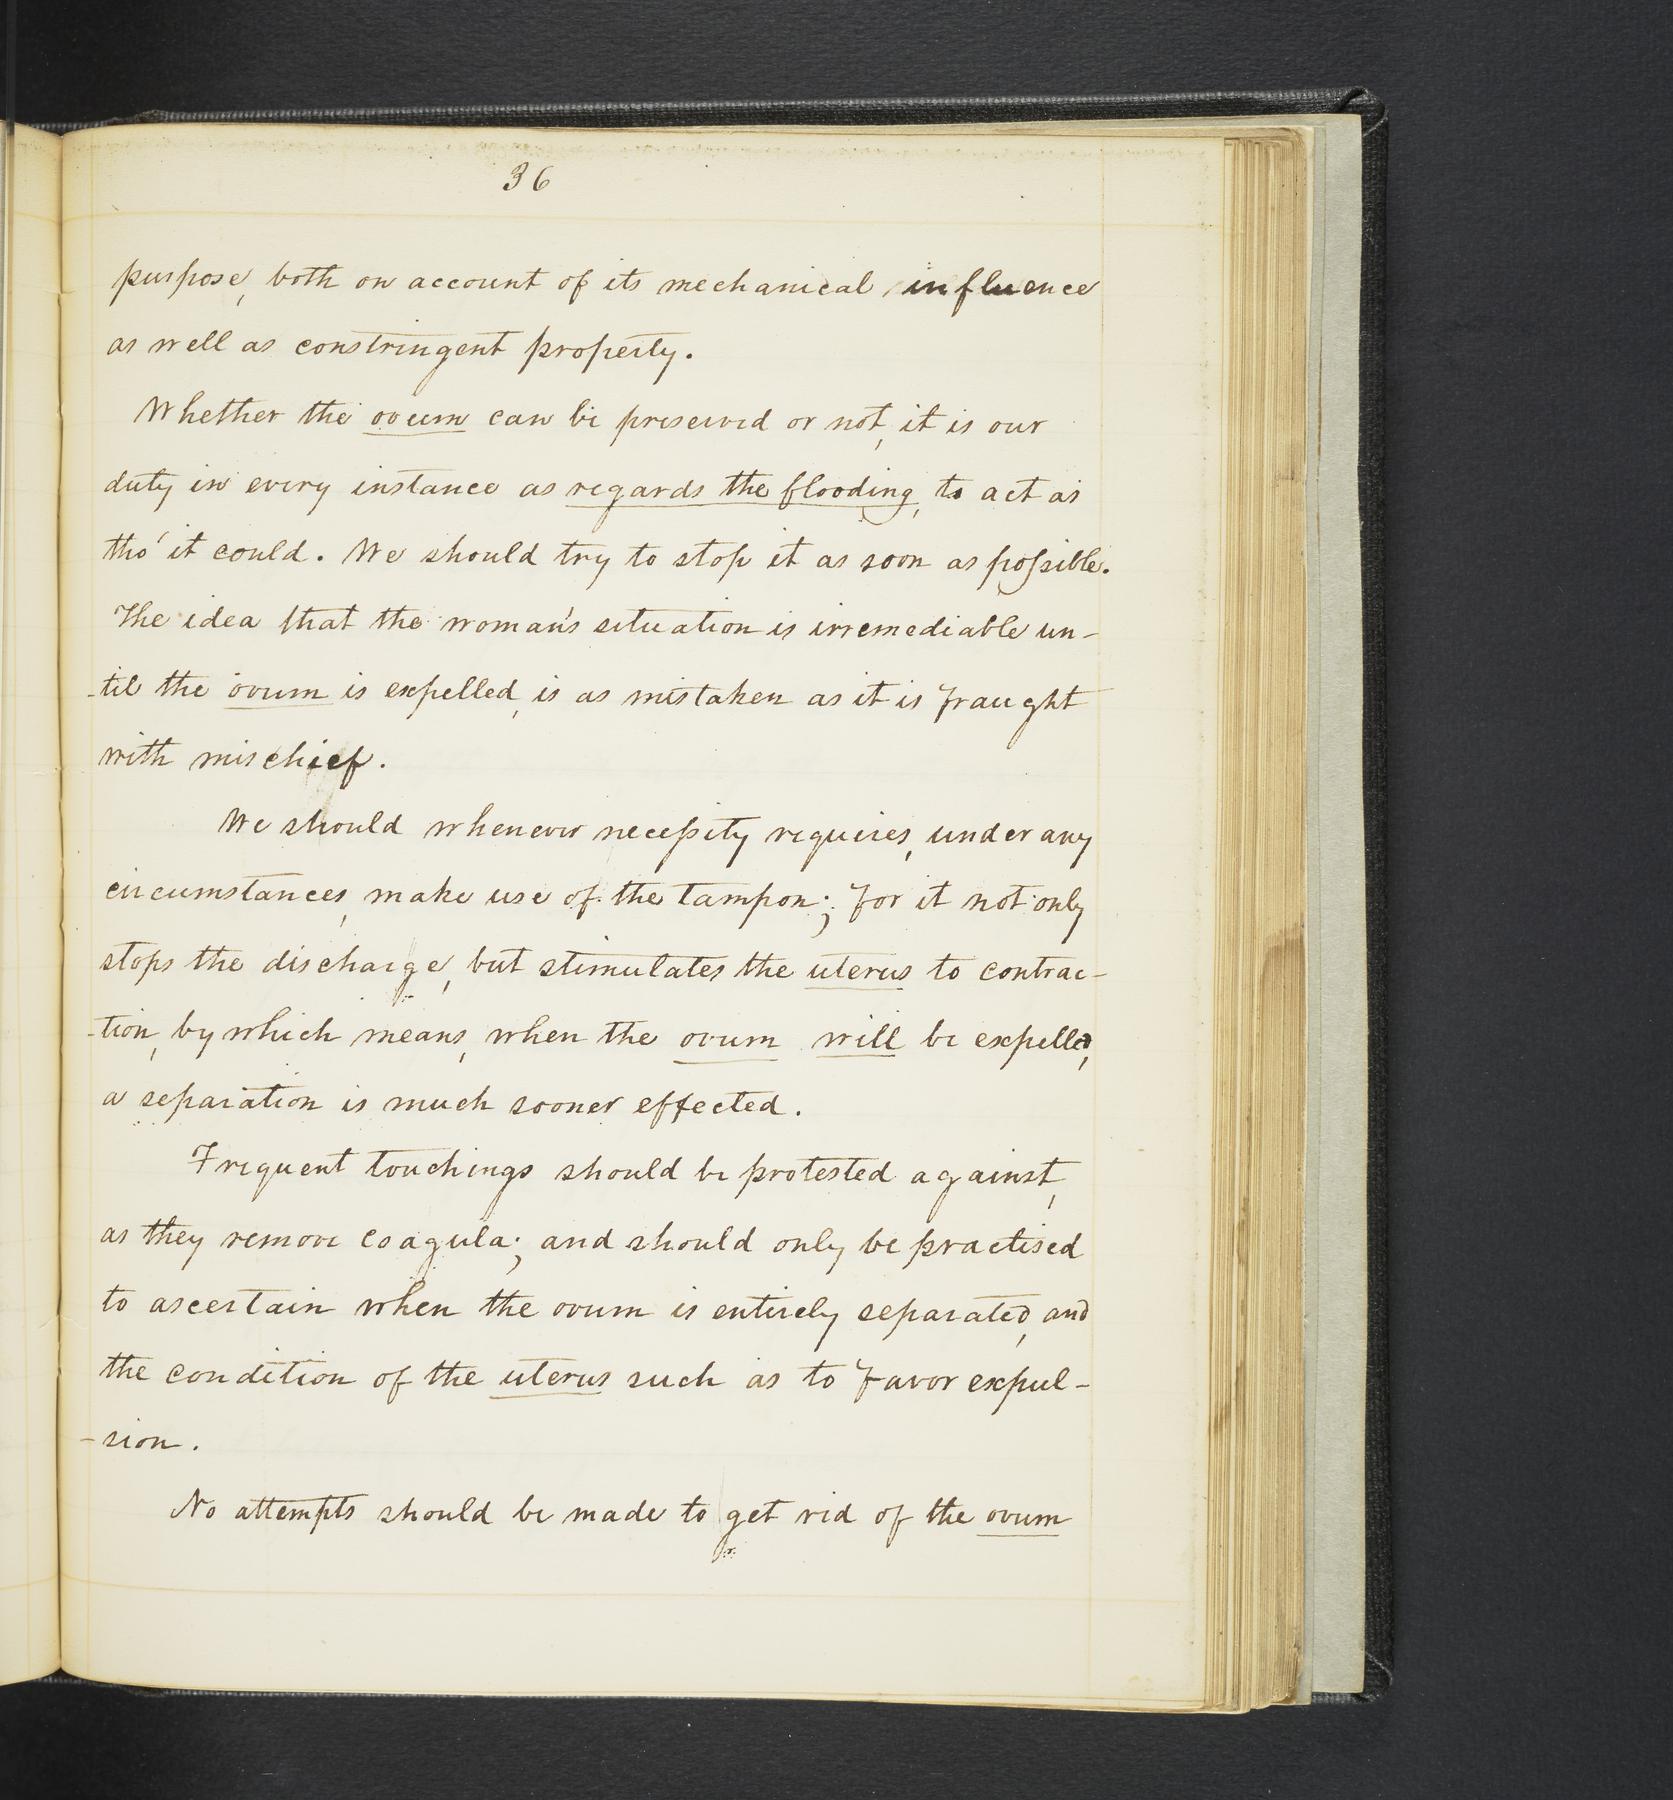 36
purpose, both on account of its mechanical influence
as well as constringent property.
Whether the ovum can be preserved or not, it is our
duty in every instance as regards the flooding, to act as
tho' it could. We should try to stop it as soon as possible.
The idea that the woman's situation is irremediable un-
-til the ovum is expelled, is as mistaken as it is fraught
with mischief.
We should whenever necessity requires, under any
circumstances, make use of the tampon; for it not only
stops the discharge, but stimulates the uterus to contrac-
-tion, by which means, when the ovum will be expelled,
a separation is much sooner effected.
Frequent touchings should be protested against,
as they remove coagula; and should only be practised
to ascertain when the ovum is entirely separated, and
the condition of the uterus such as to favor expul-
-sion.
No attempts should be made to get rid of the ovum